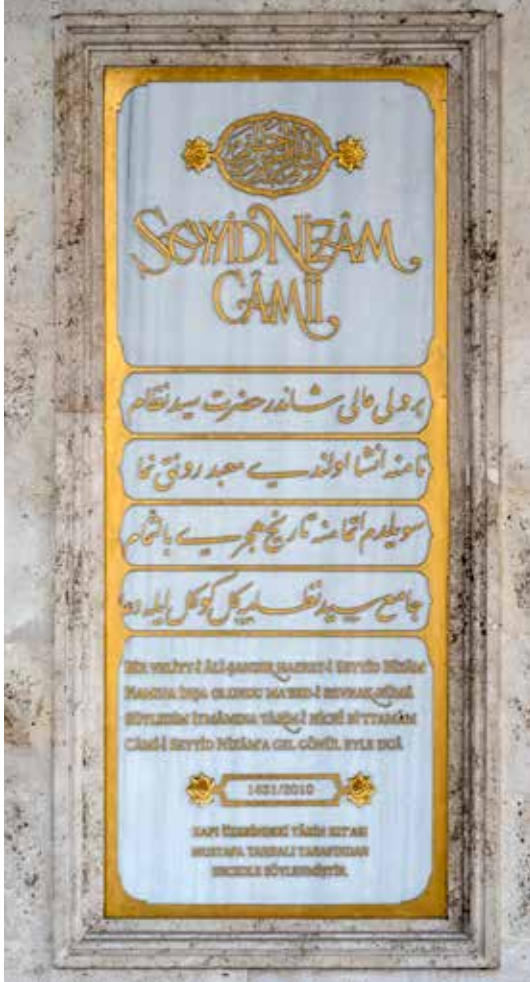 SEYYİD NİZÂM
CÂMİİ
بر ولی عالی شاندر حضرت سید نظام
نامنه انشا اولندی معبد رونق نما
سویلدم اتمامنه تاریخ هجری بالتمام
جامع سید نظامه کل کوکل ایله دعا
BİR VELİYY-İ ÂLÎ-ŞANDIR HAZRET-İ SEYYİD NİZÂM
NAMINA İNŞA OLUNDU MA'BED-İ REVNAK-NÜMÂ
SÖYLEDİM İTMÂMINA TÂRİH-İ HİCRÎ Bİ'T-TAMÂM
CÂMİ-İ SEYYİD NİZÂM'A GEL GÖNÜL EYLE DUÂ
1431/2010
KAPI ÜZERİNDEKİ TÂRİH KIT'ASI
MUSTAFA TAHRALI TARAFINDAN
SÖYLENMİŞTİR.